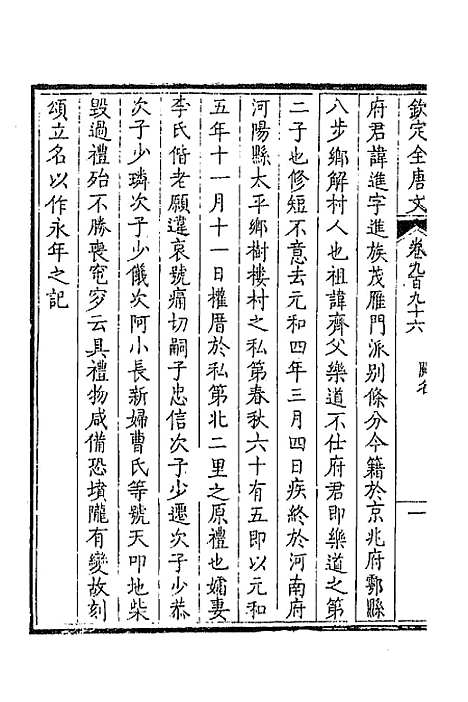 欽定全唐文 卷九百九十六 闕名 一
府君諱進字進族茂雁門派別條分今籍於京兆府鄠縣
八步鄉解村人也祖諱齊父樂道不仕府君即樂道之第
二子也修短不意去元和四年三月四日疾終於河南府
河陽縣太平鄉樹樓村之私第春秋六十有五即以元和
五年十一月十一日權厝於私第北二里之原禮也孀妻
李氏偕老願違哀號痛切嗣子忠信次子少遷次子少恭
次子少璘次子少儀次阿小長新婦曹氏等號天叩地柴
毀過禮殆不勝喪窀穸云具禮物咸備恐墳隴有變故刻
頌立名以作永年之記